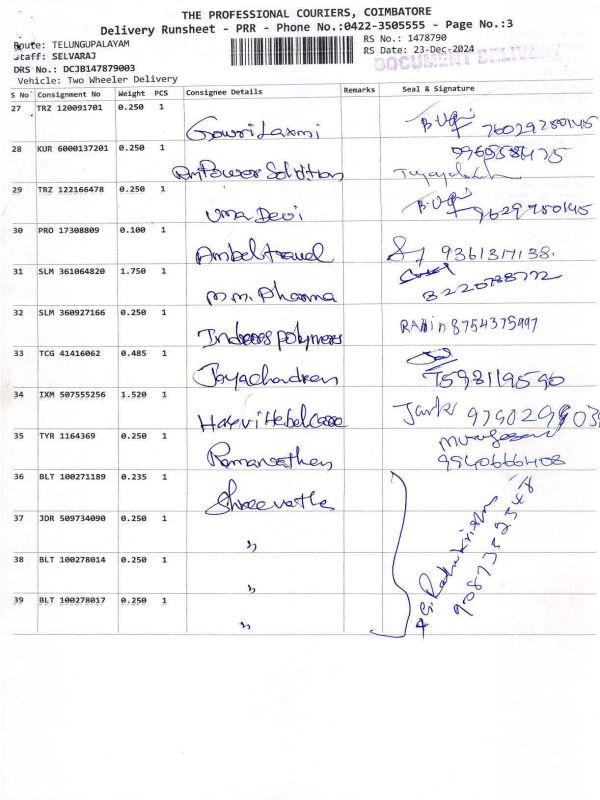 THE PROFESSIONAL COURIERS, COIMBATORE
Delivery Runsheet - PRR - Phone No.:0422-3505555 - Page No.:3
Route: TELUNGUPALAYAM RS No.: 1478790
Staff: SELVARAJ RS Date: 23-Dec-2024
DOCUMENT DELIVERY
DRS No.: DCJB147879003
Vehicle: Two Wheeler Delivery
S No Consignment No Weight PCS Consignee Details Remarks Seal & Signature
27 TRZ 120091701 0.250 1
Gowri Laxmi
28 KUR 6000137201 0.250 1
AmPower Solution
29 TRZ 122166478 0.250 1
Uma Devi 9629780145
30 PRO 17308809 0.100 1
Ambel travel
31 SLM 361064820 1.750 1
M.M. Pharma
32 SLM 360927166 0.250 1
polymers 8754375997
33 TCG 41416062 0.485 1
Jayachandren
34 IXM 507555256 1.520 1
35 TYR 1164369 0.250 1
Ramanathan 9940666408
36 BLT 100271189 0.235 1
37 JDR 509734090 0.250 1
"
38 BLT 100278014 0.250 1
"
39 BLT 100278017 0.250 1
"